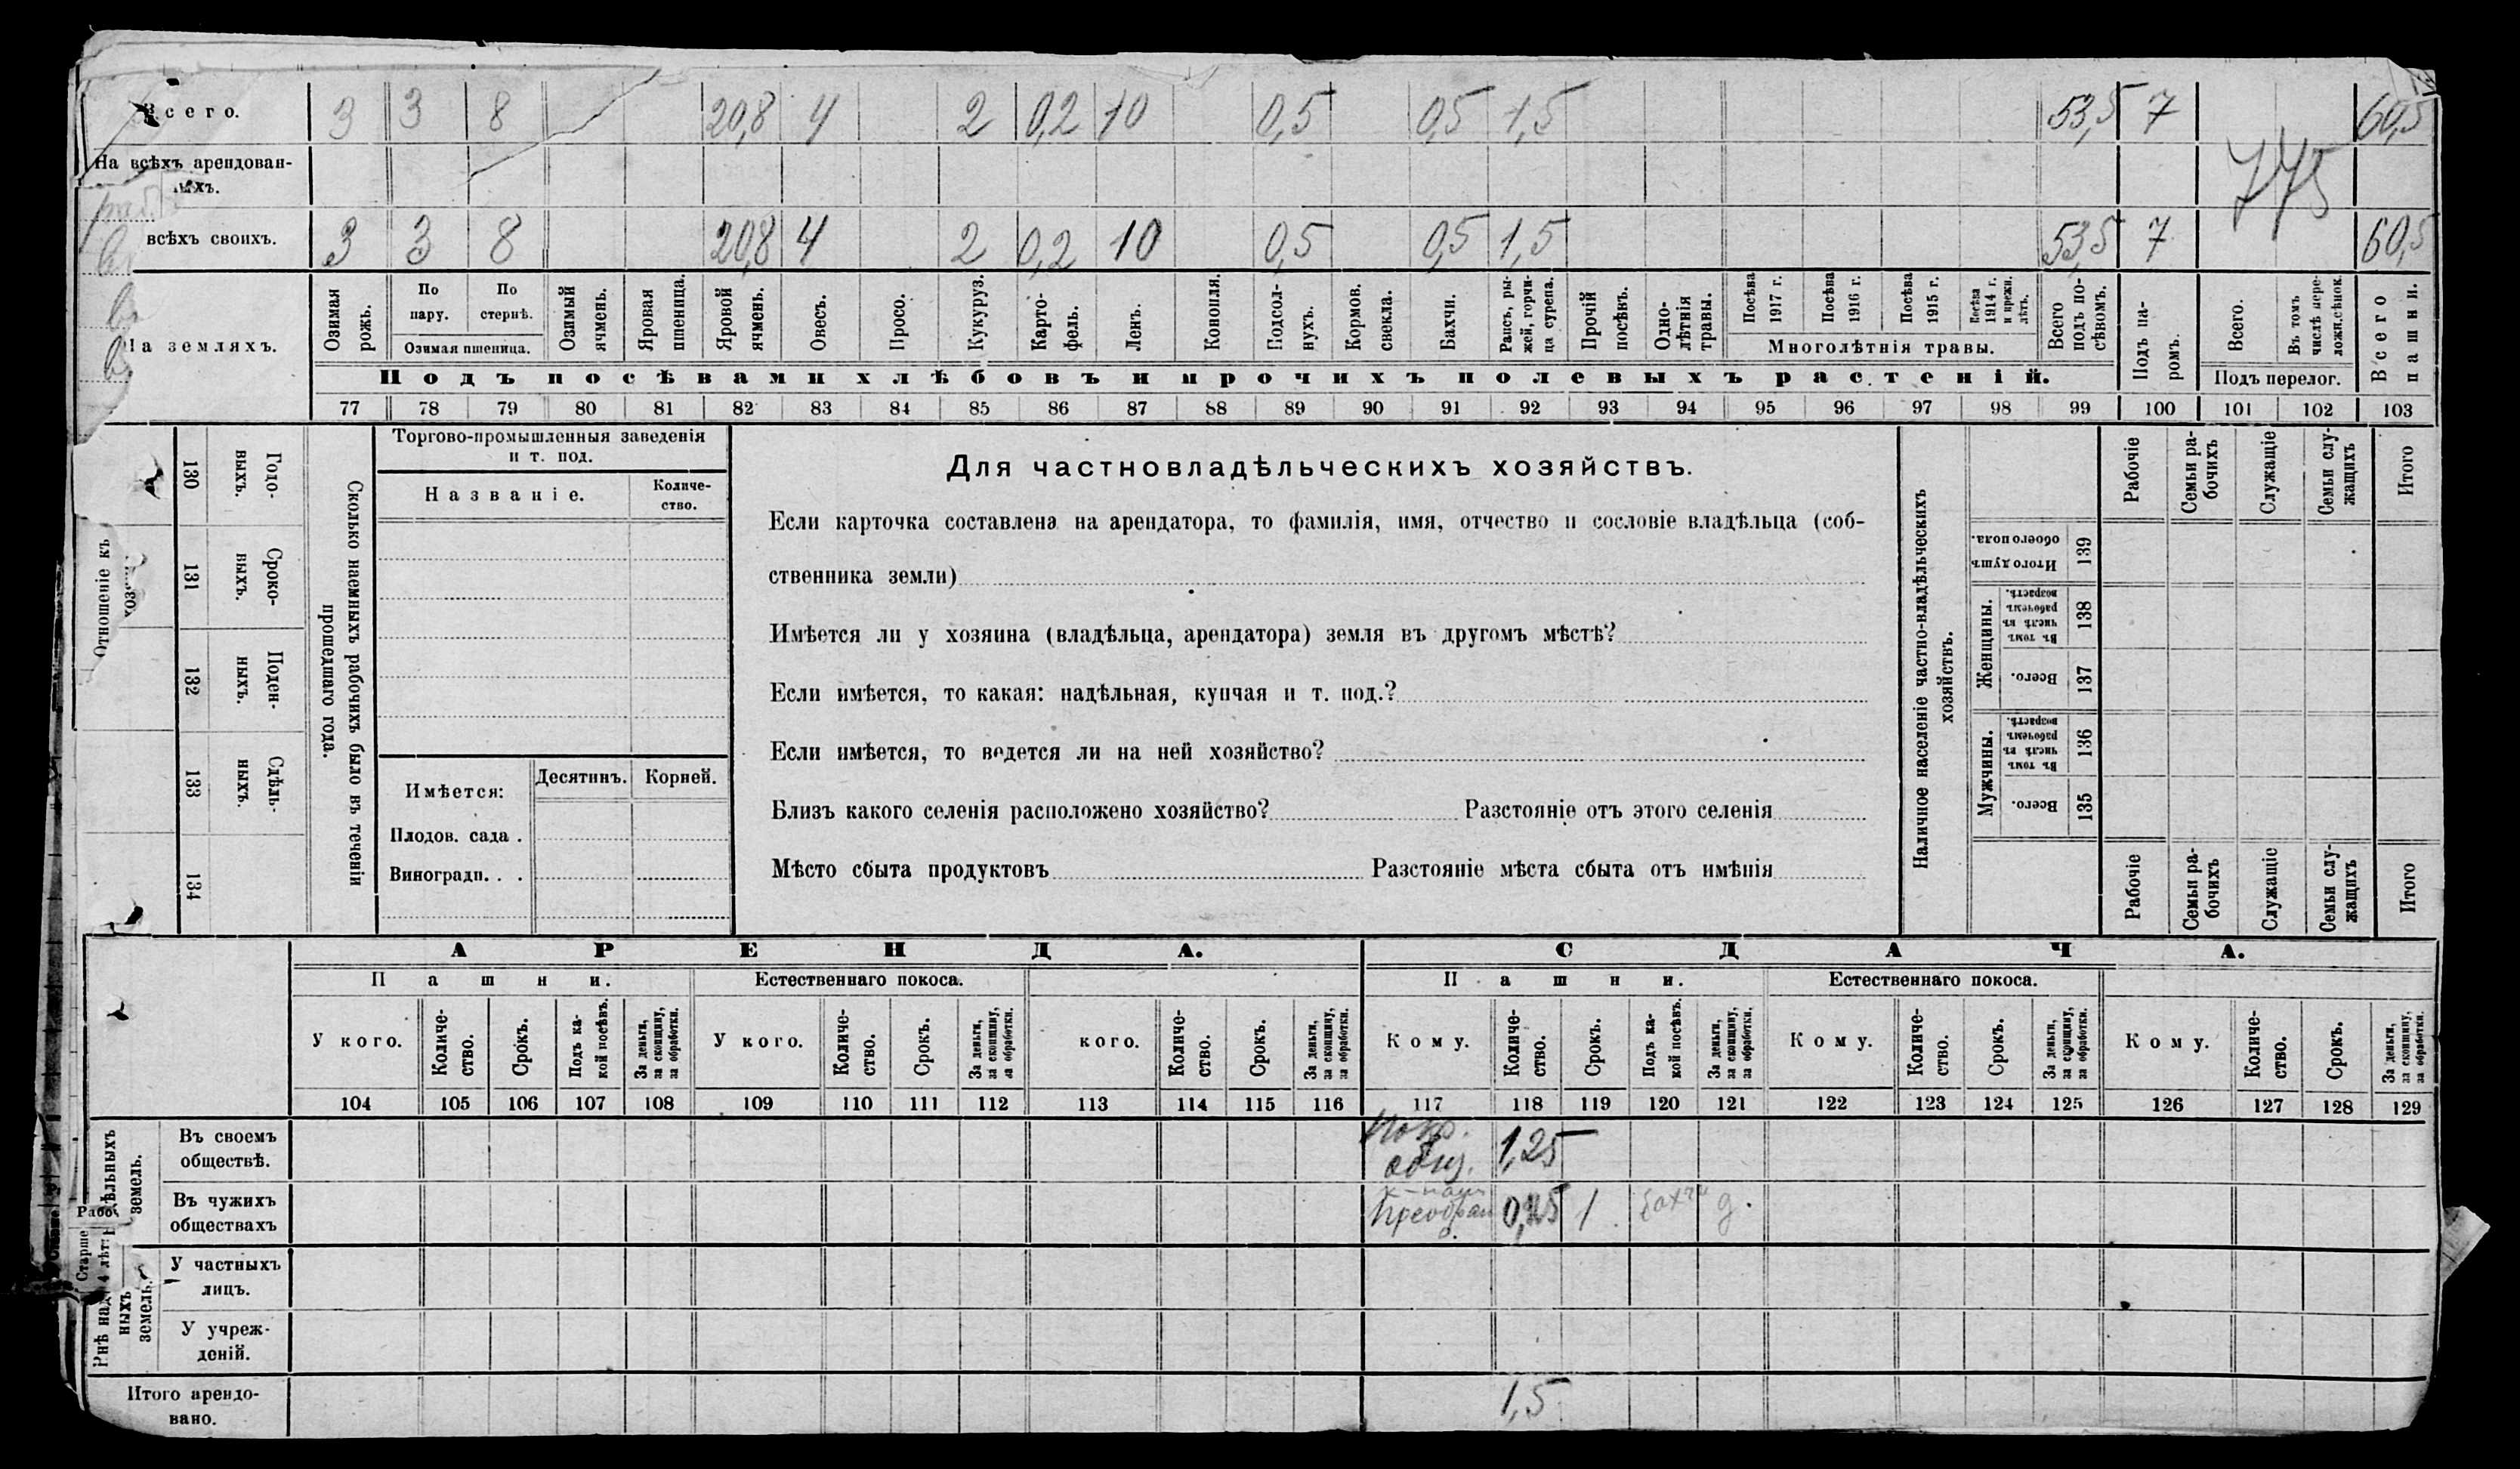 Всего. 3 3 8 20,8 4 2 0,2 10 0,5 0,5 1,5 53,5 7 60,5
На всѣхъ арендован-
ныхъ.
775
всѣхъ своихъ. 3 3 8 20,8 4 2 0,2 10 0,5 0,5 1,5 53,5 7 60,5
На земляхъ.
Озимая рожь.
По пару.
По стернѣ.
Озимая пшеница.
Озимый ячмень.
Яровая пшеница.
Яровой ячмень.
Овесъ.
Просо.
Кукуруз.
Карто-
фель.
Ленъ.
Конопля.
Подсол-
нухъ.
Кормов.
свекла.
Бахчи.
Рапсъ, ры-
жей, горчи-
ца сурепа.
Прочій
посѣвъ.
Одно-
лѣтнія
травы.
Посѣва
1917 г.
Посѣва
1916 г.
Посѣва
1915 г.
Посѣва
1914 г.
и прежн.
лѣтъ.
Многолѣтнія травы.
Всего
подъ по-
сѣвомъ.
Подъ па-
ромъ.
Всего.
Въ томъ
числѣ пере-
ложн. сѣнок.
Подъ перелог.
Всего
пашни.
Подъ посѣвами хлѣбовъ и прочихъ полевыхъ растеній.
77 78 79 80 81 82 83 84 85 86 87 88 89 90 91 92 93 94 95 96 97 98 99 100 101 102 103
Отношеніе къ
хоз
130 131 132 133 134
Годо-
выхъ.
Сроко-
ныхъ.
Поден-
ныхъ.
Сдѣль-
ныхъ.
Сколько наемныхъ рабочихъ было въ теченіи
прошедшаго года.
Торгово-промышленныя заведенія
и т. под.
Названіе.
Количе-
ство.
Имѣется:
Десятинъ. Корней.
Плодов. сада .
Виноградн. . .
Для частновладѣльческихъ хозяйствъ.
Если карточка составлена на арендатора, то фамилія, имя, отчество и сословіе владѣльца (соб-
ственника земли)
Имѣется ли у хозяина (владѣльца, арендатора) земля въ другомъ мѣстѣ?
Если имѣется, то какая: надѣльная, купчая и т. под.?
Если имѣется, то ведется ли на ней хозяйство?
Близъ какого селенія расположено хозяйство? Разстояніе отъ этого селенія
Мѣсто сбыта продуктовъ Разстояніе мѣста сбыта отъ имѣнія
Наличное населеніе частно-владѣльческихъ
хозяйствъ.
Рабочіе
Семьи ра-
бочихъ
Служащіе
Семьи слу-
жащихъ
Итого
Итого душъ
обоего пола.
139
Женщины.
Въ томъ
числѣ въ
рабочемъ
возрастѣ.
138
Всего.
137
Мужчины.
Въ томъ
числѣ въ
рабочемъ
возрастѣ.
136
Всего.
135
Рабочіе
Семьи ра-
бочихъ
Служащіе
Семьи слу-
жащихъ
Итого
АРЕНДА. СДАЧА.
Пашни. Естественнаго покоса. Пашни. Естественнаго покоса.
У кого.
Количе-
ство.
Срокъ.
Подъ ка-
кой посѣвъ.
За деньги,
за скопщину,
за обработки.
У кого.
Количе-
ство.
Срокъ.
За деньги,
за скопщину,
за обработки.
кого.
Количе-
ство.
Срокъ.
За деньги,
за скопщину,
за обработки.
Кому.
Количе-
ство.
Срокъ.
Подъ ка-
кой посѣвъ.
За деньги,
за скопщину,
за обработки.
Кому.
Количе-
ство.
Срокъ.
За деньги,
за скопщину,
за обработки.
Кому.
Количе-
ство.
Срокъ.
За деньги,
за скопщину,
за обработки.
104 105 106 107 108 109 110 111 112 113 114 115 116 117 118 119 120 121 122 123 124 125 126 127 128 129
дѣльныхъ
земель.
Въ своемъ
обществѣ.
1,25
Въ чужихъ
обществахъ
Преображ 1 бахчи д.
Рабо
Старше
4 лѣт
Внѣ над
ныхъ
земель.
У частныхъ
лицъ.
У учреж-
деній.
Итого арендо-
вано.
1,5